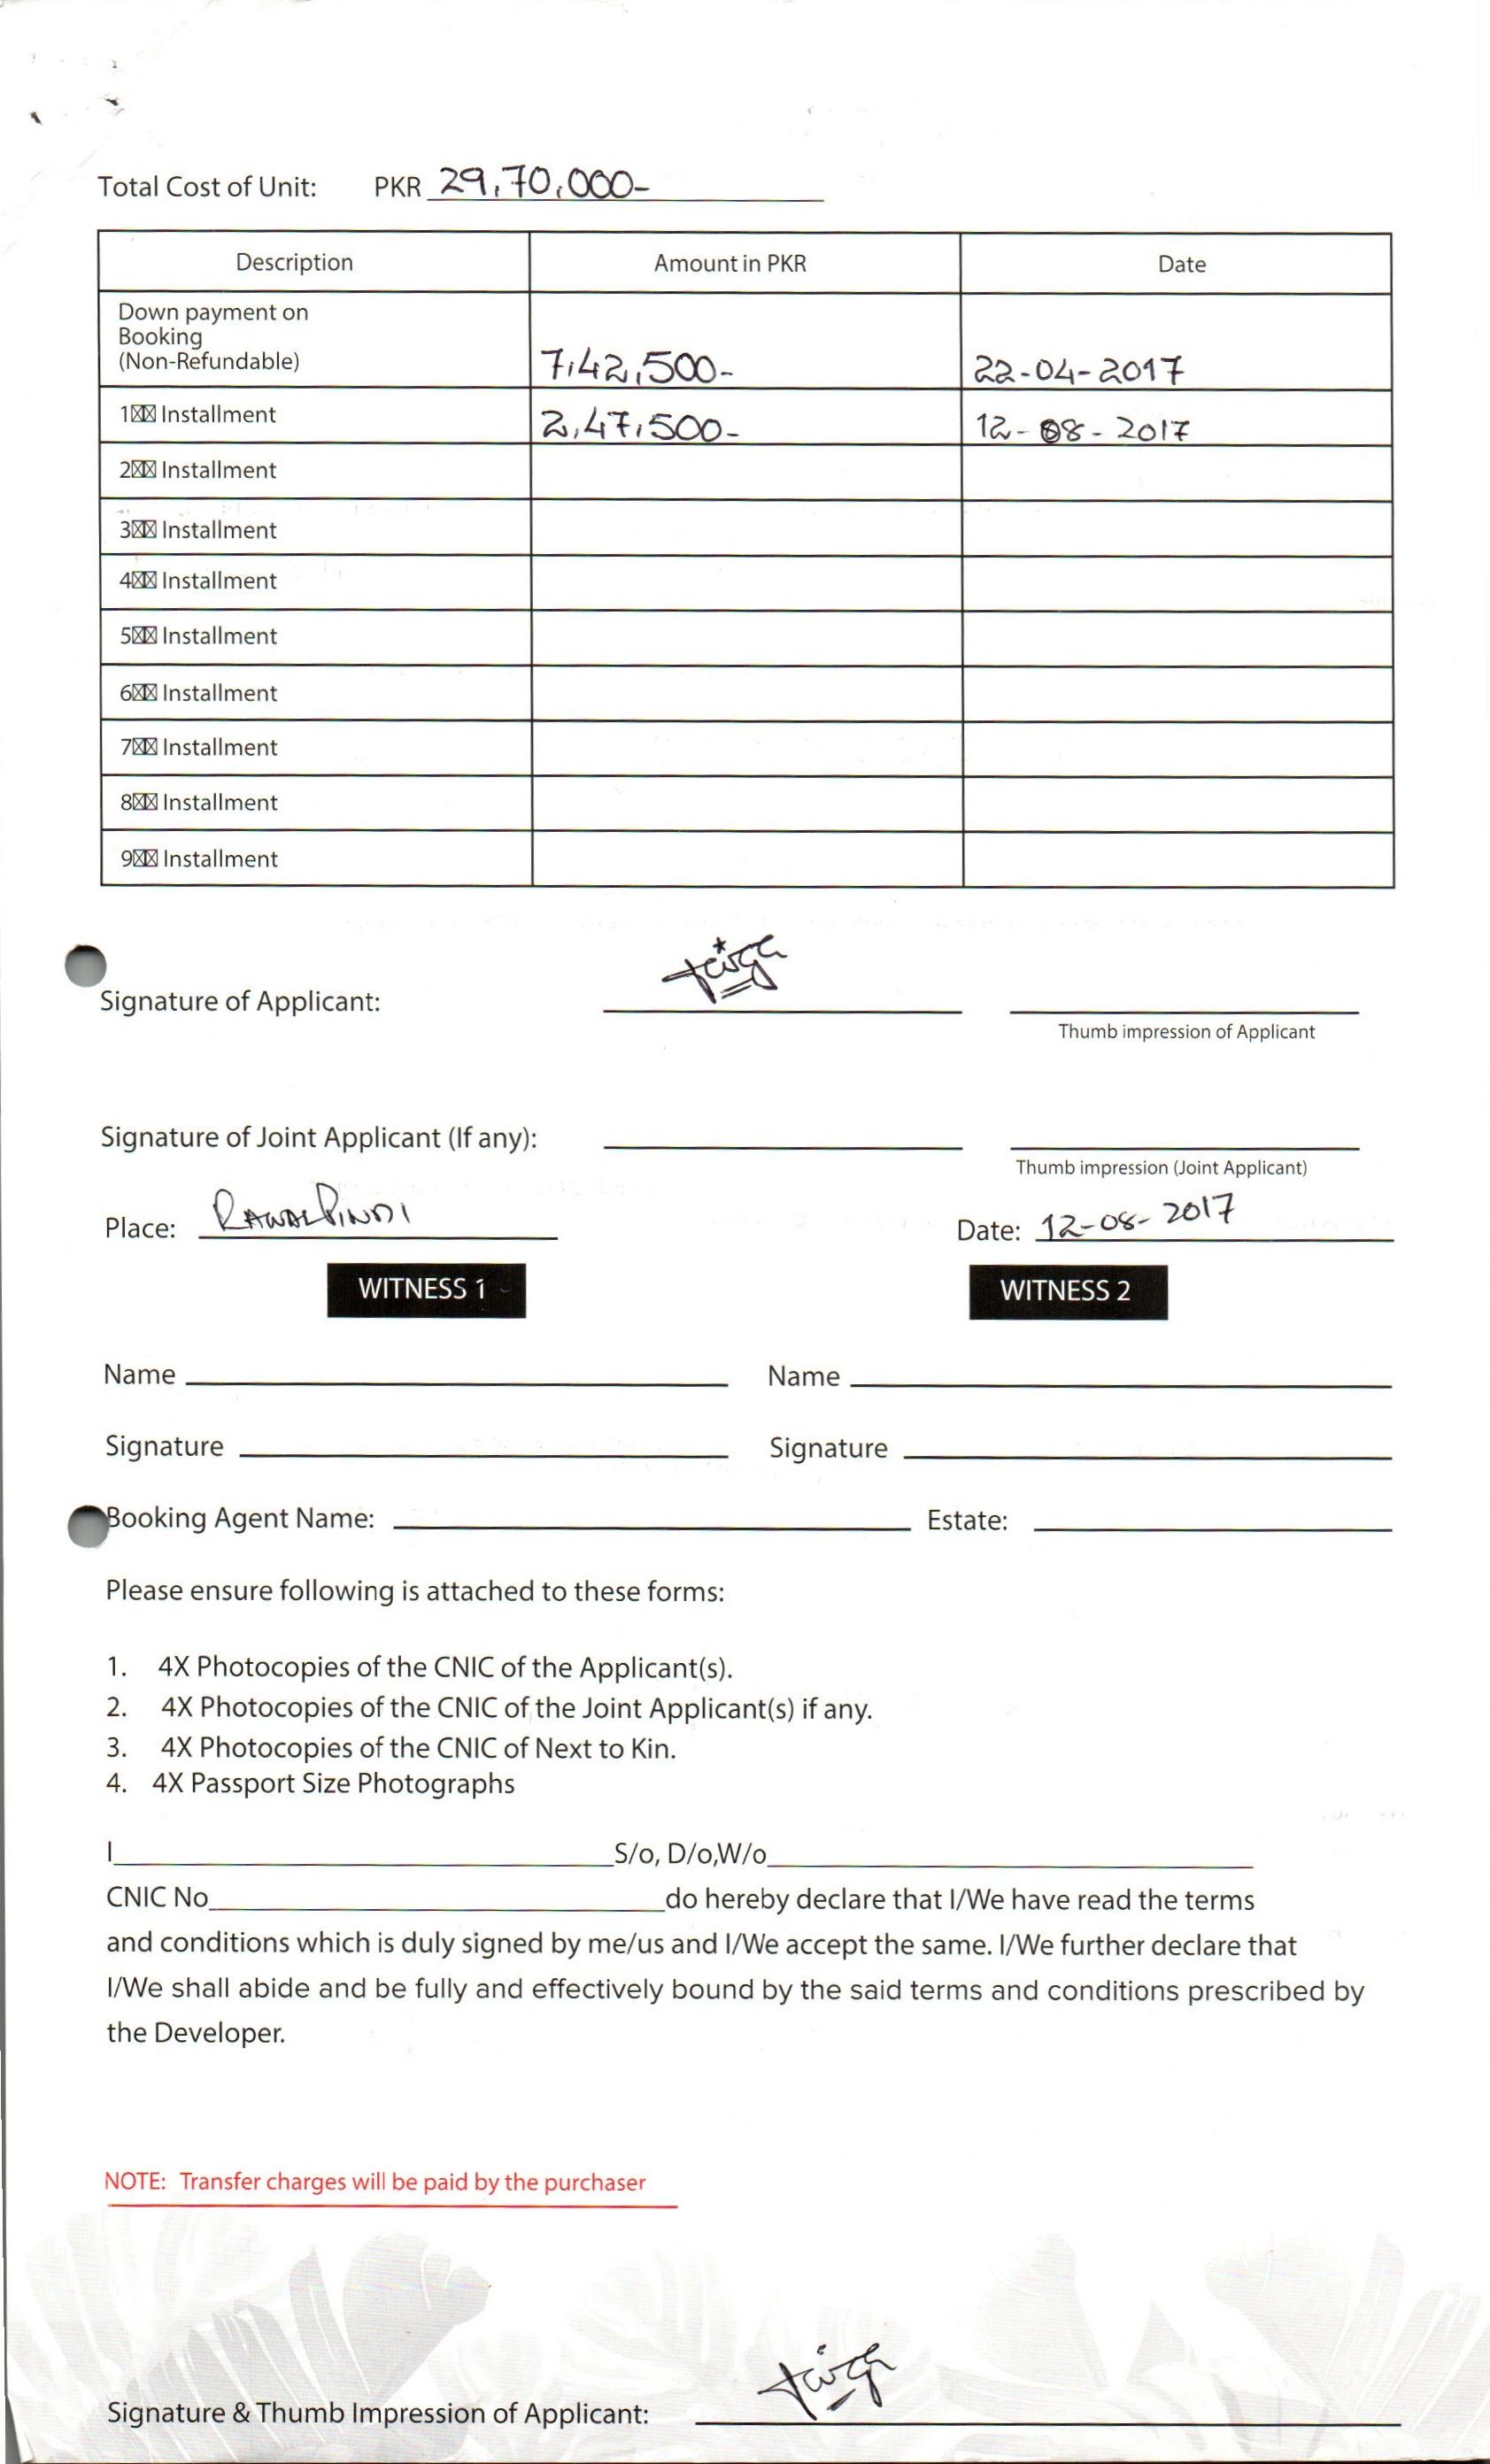 Total Cost of Unit: PKR 29,70,000-
Description Amount in PKR Date
Down payment on
Booking
(Non-Refundable) 7,42,500- 22-04-2017
1☒☒ Installment 2,47,500- 12-08-2017
2☒☒ Installment
3☒☒ Installment
4☒☒ Installment
5☒☒ Installment
6☒☒ Installment
7☒☒ Installment
8☒☒ Installment
9☒☒ Installment
Signature of Applicant:
Thumb impression of Applicant
Signature of Joint Applicant (If any):
Thumb impression (Joint Applicant)
Place: RAWALPINDI Date: 12-08-2017
WITNESS 1 WITNESS 2
Name Name
Signature Signature
Booking Agent Name: Estate:
Please ensure following is attached to these forms:
1. 4X Photocopies of the CNIC of the Applicant(s).
2. 4X Photocopies of the CNIC of the Joint Applicant(s) if any.
3. 4X Photocopies of the CNIC of Next to Kin.
4. 4X Passport Size Photographs
I S/o, D/o,W/o
CNIC No do hereby declare that I/We have read the terms
and conditions which is duly signed by me/us and I/We accept the same. I/We further declare that
I/We shall abide and be fully and effectively bound by the said terms and conditions prescribed by
the Developer.
NOTE: Transfer charges will be paid by the purchaser
Signature & Thumb Impression of Applicant: